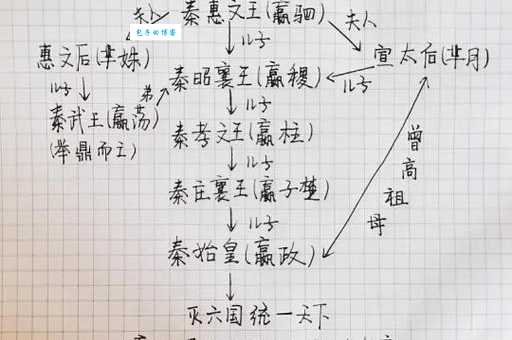 夫人 秦惠文王(嬴驷) 夫人
包子の博客
惠文后(芈姝) 儿子 宣太后(芈月)
儿子 弟 秦昭襄王(嬴稷) 儿子
秦武王(嬴荡) 儿子
(举鼎而亡) 秦孝文王(嬴柱)
儿子
秦庄襄王(嬴子楚)
儿子
秦始皇(嬴政) 曾高祖母
灭六国统一天下